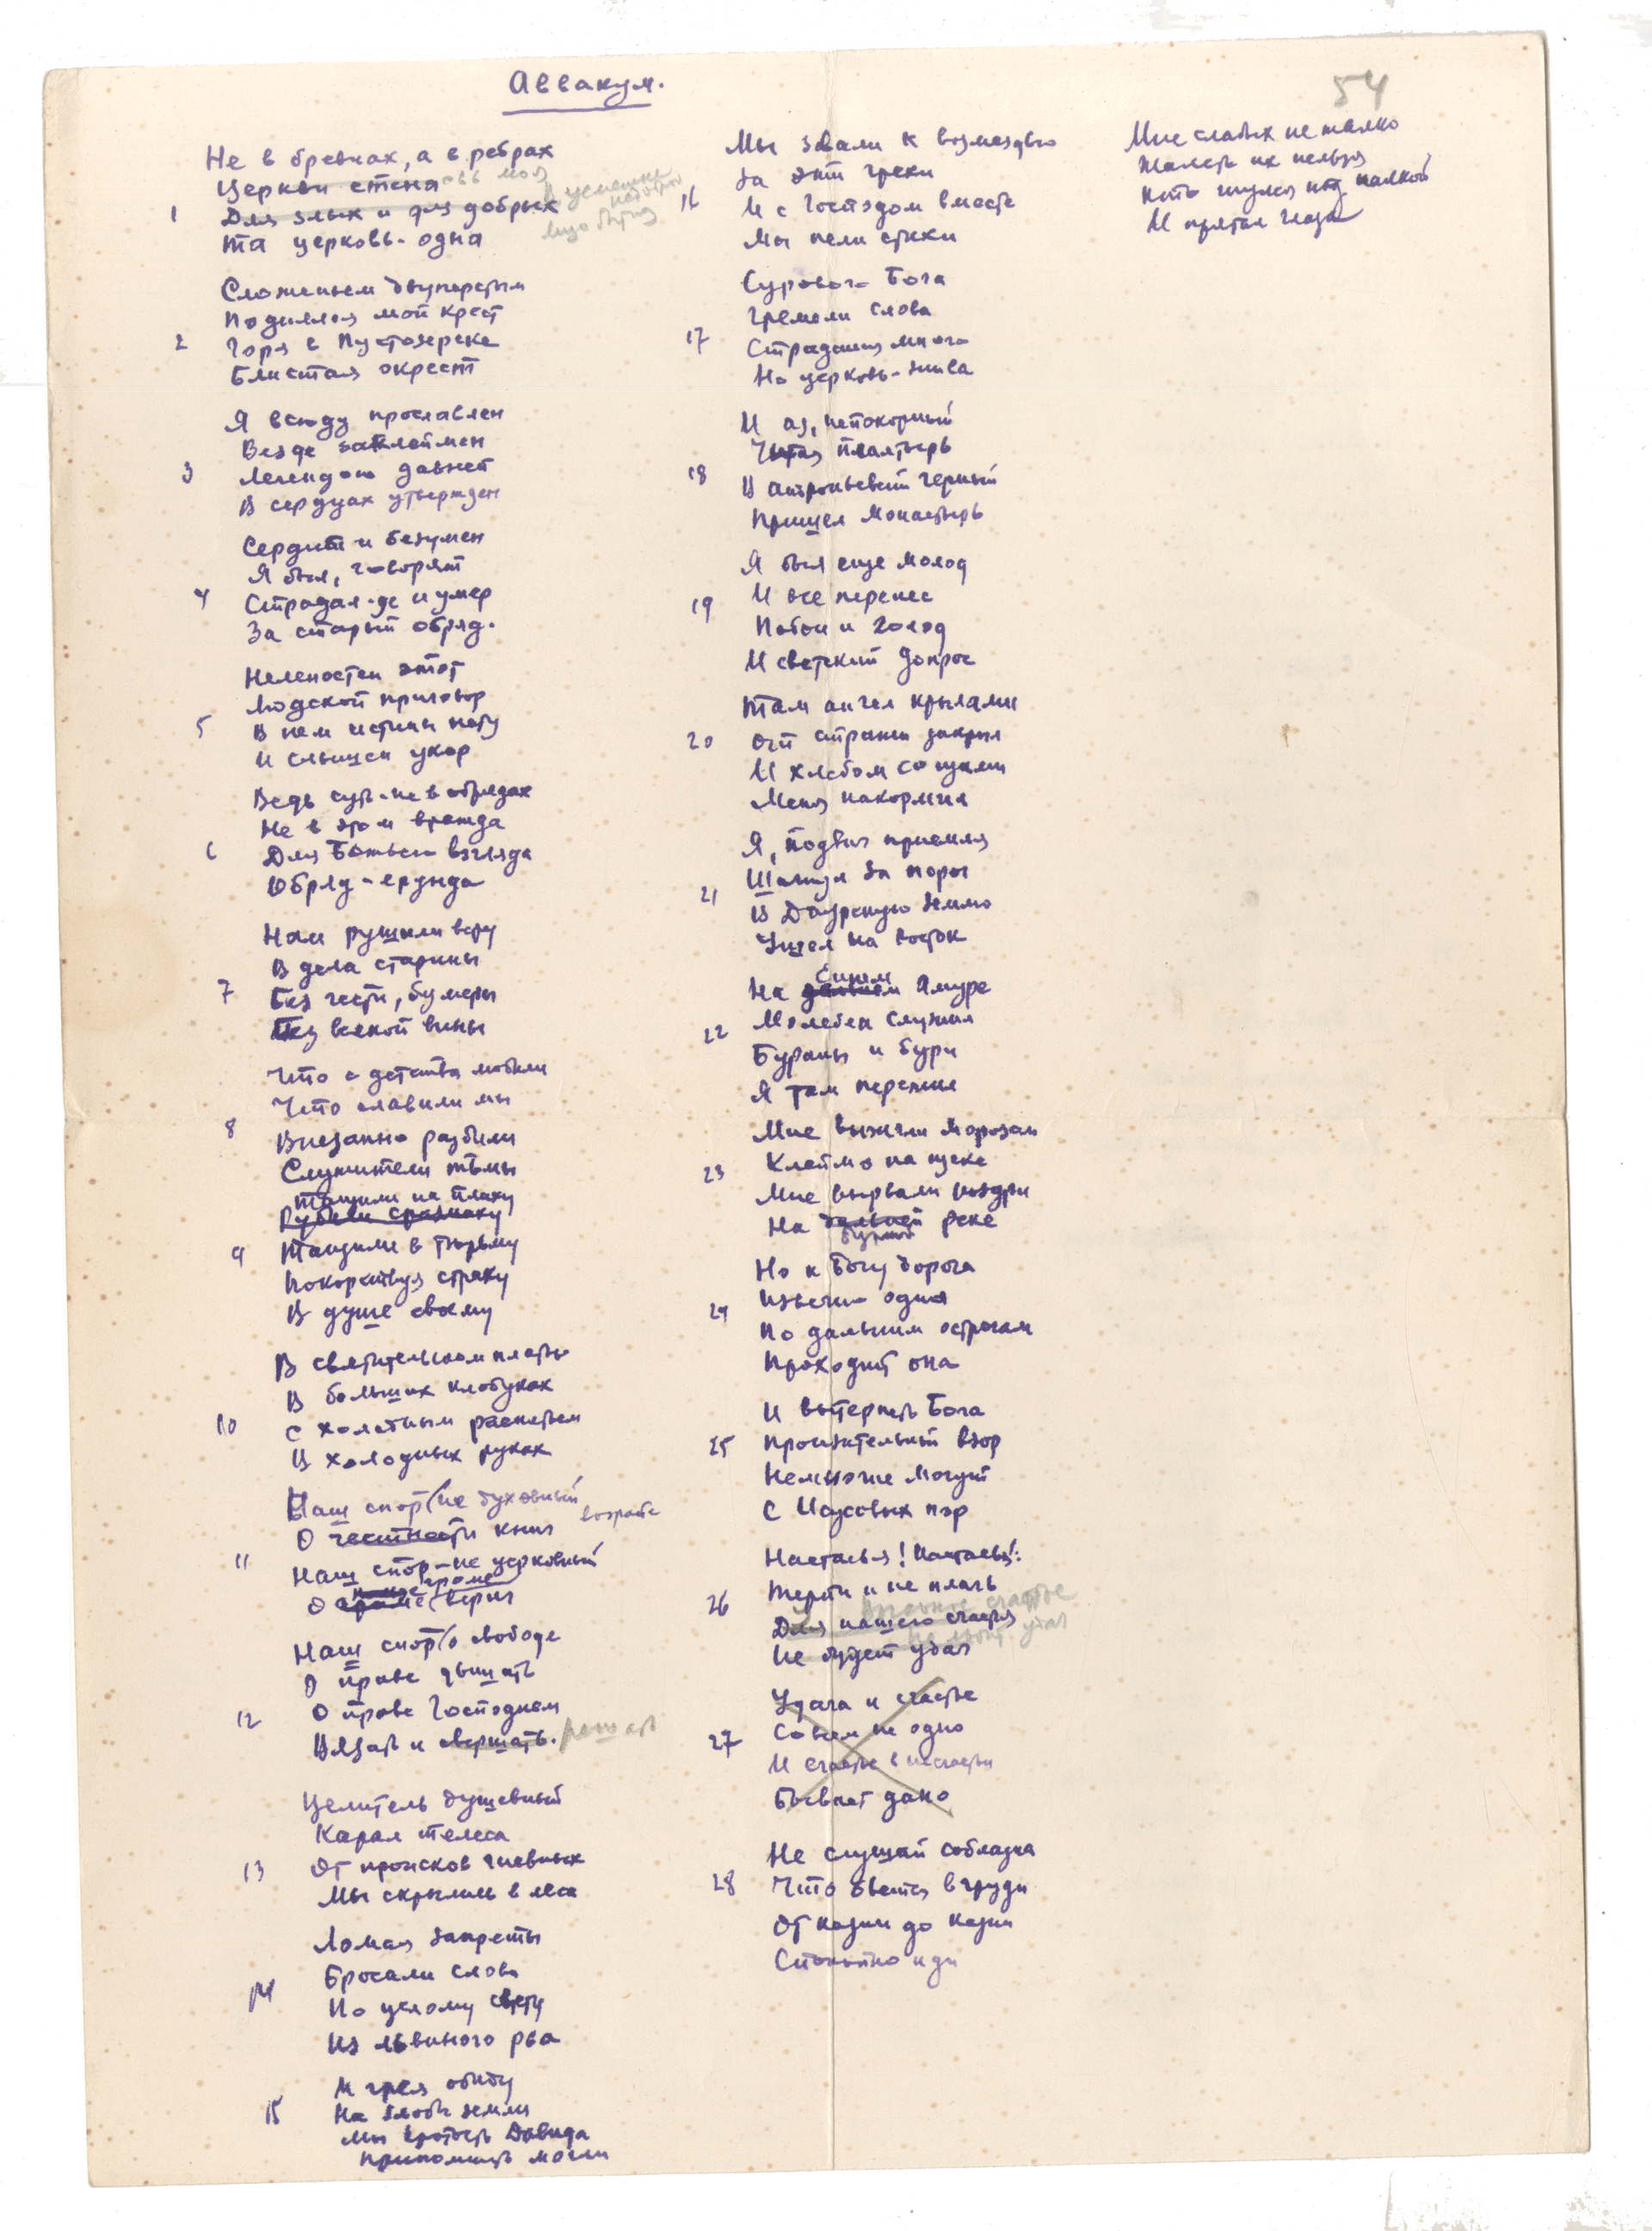 Аввакум.
54
Не в бревнах, а в ребрах
Церкви стена овь моя
В усмешке недобрых
1 Для злых и для добрых
Лицо бытия
Та церковь - одна
Сложеньем двуперстым
Поднялся мой крест
2 Горя в Пустозерске
Блистая окрест
Я всюду прославлен
Везде заклеймен
3 Легендою давней
В сердцах утвержден
Сердит и безумен
Я был, говорят
4 Страдал-де и умер
За старый обряд.
Нелепостен этот
Людской приговор
5 В нем истины нету
И слышен укор
Ведь суть-не в обрядах
Не в этом вражда
6 Для Божьего взгляда
Обряд - ерунда
Нам рушили веру
В дела старины
7 Без чести, без меры
Без всякой вины
Что с детства любили
Что славили мы
8 Внезапно разбили
Служители тьмы
Тащили на плаху
Рубили сразмаху
9 Тащили в тюрьму
Покорствуя страху
В душе своему
В святительском платье
В больших клобуках
10 С холодным распятьем
В холодных руках
Наш спор не духовный
О честности книг
возрасте
11 Наш спор - не церковный
кроме
О вериг
Наш спор о свободе
О праве дышать
12 О праве Господнем
Вязать и вершать. решать
Целитель душевный
Карал телеса
13 От происков гневных
Мы скрылись в леса
Ломая запреты
Бросали слова
14 По целому свету
Из львиного рва
И грея обиду
15 На злобы земли
Мы кротость Давида
Припомнить могли
Мы звали к возмездью
За эти грехи
16 И с Господом вместе
Мы пели стихи
Сурового Бога
Гремели слова
17 Страдания много
Но церковь - жива
И аз, непокорный
Читая Псалтырь
18 В Андроньевский черный
Пришел монастырь
Я был еще молод
19 И все перенес
Побои и голод
И светский допрос
Там ангел крылами
20 От стражи закрыл
И хлебом со щами
Меня накормил
Я, подвиг приемля
Шагнул за порог
21 В Даурскую землю
Ушел на восток
синем
На дальнем Амуре
22 Молебен служил
Бураны и бури
Я там пережил
Мне выжгли морозом
23 Клеймо на щеке
Мне вырвали ноздри
На дальней реке
бурной
Но к Богу дорога
24 Извечно одна
По дальним острогам
Проходит она
И вытерпеть Бога
25 Пронзительный взор
Немногие могут
С Исусовых пор
Настасья! Настасья!
26 Терпи и не плачь
счастье
Для нашего счастья
удач
Не будет удач
Удача и счастье
27 Совсем не одно
И счастье в несчастьи
Бывает дано
Не слушай соблазна
28 Что бьется в груди
От казни до казни
Спокойно иди
Мне слабых не жалко
Жалеть их нельзя
Кто гнулся под палкой
И прятал глаза